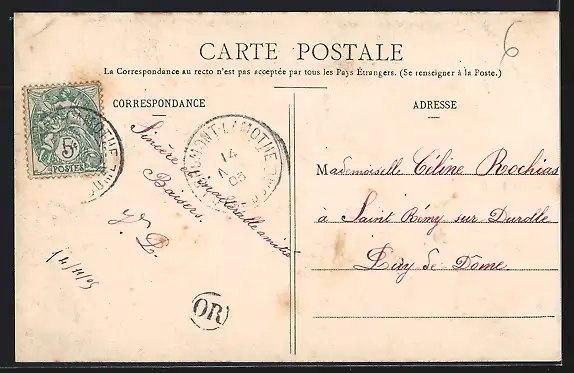 6
CARTE POSTALE
La Correspondance au recto n'est pas acceptée par tous les Pays Étrangers. (Se renseigner à la Poste.)
CORRESPONDANCE
ADRESSE
5c
POSTES
LAMOTHE
MONT-LAMOTHE
14
05
Sincère et
amitié
Baisers.
OR
Mademoiselle Céline Rochias
à Saint Rémy sur Durolle
Puy de Dôme.